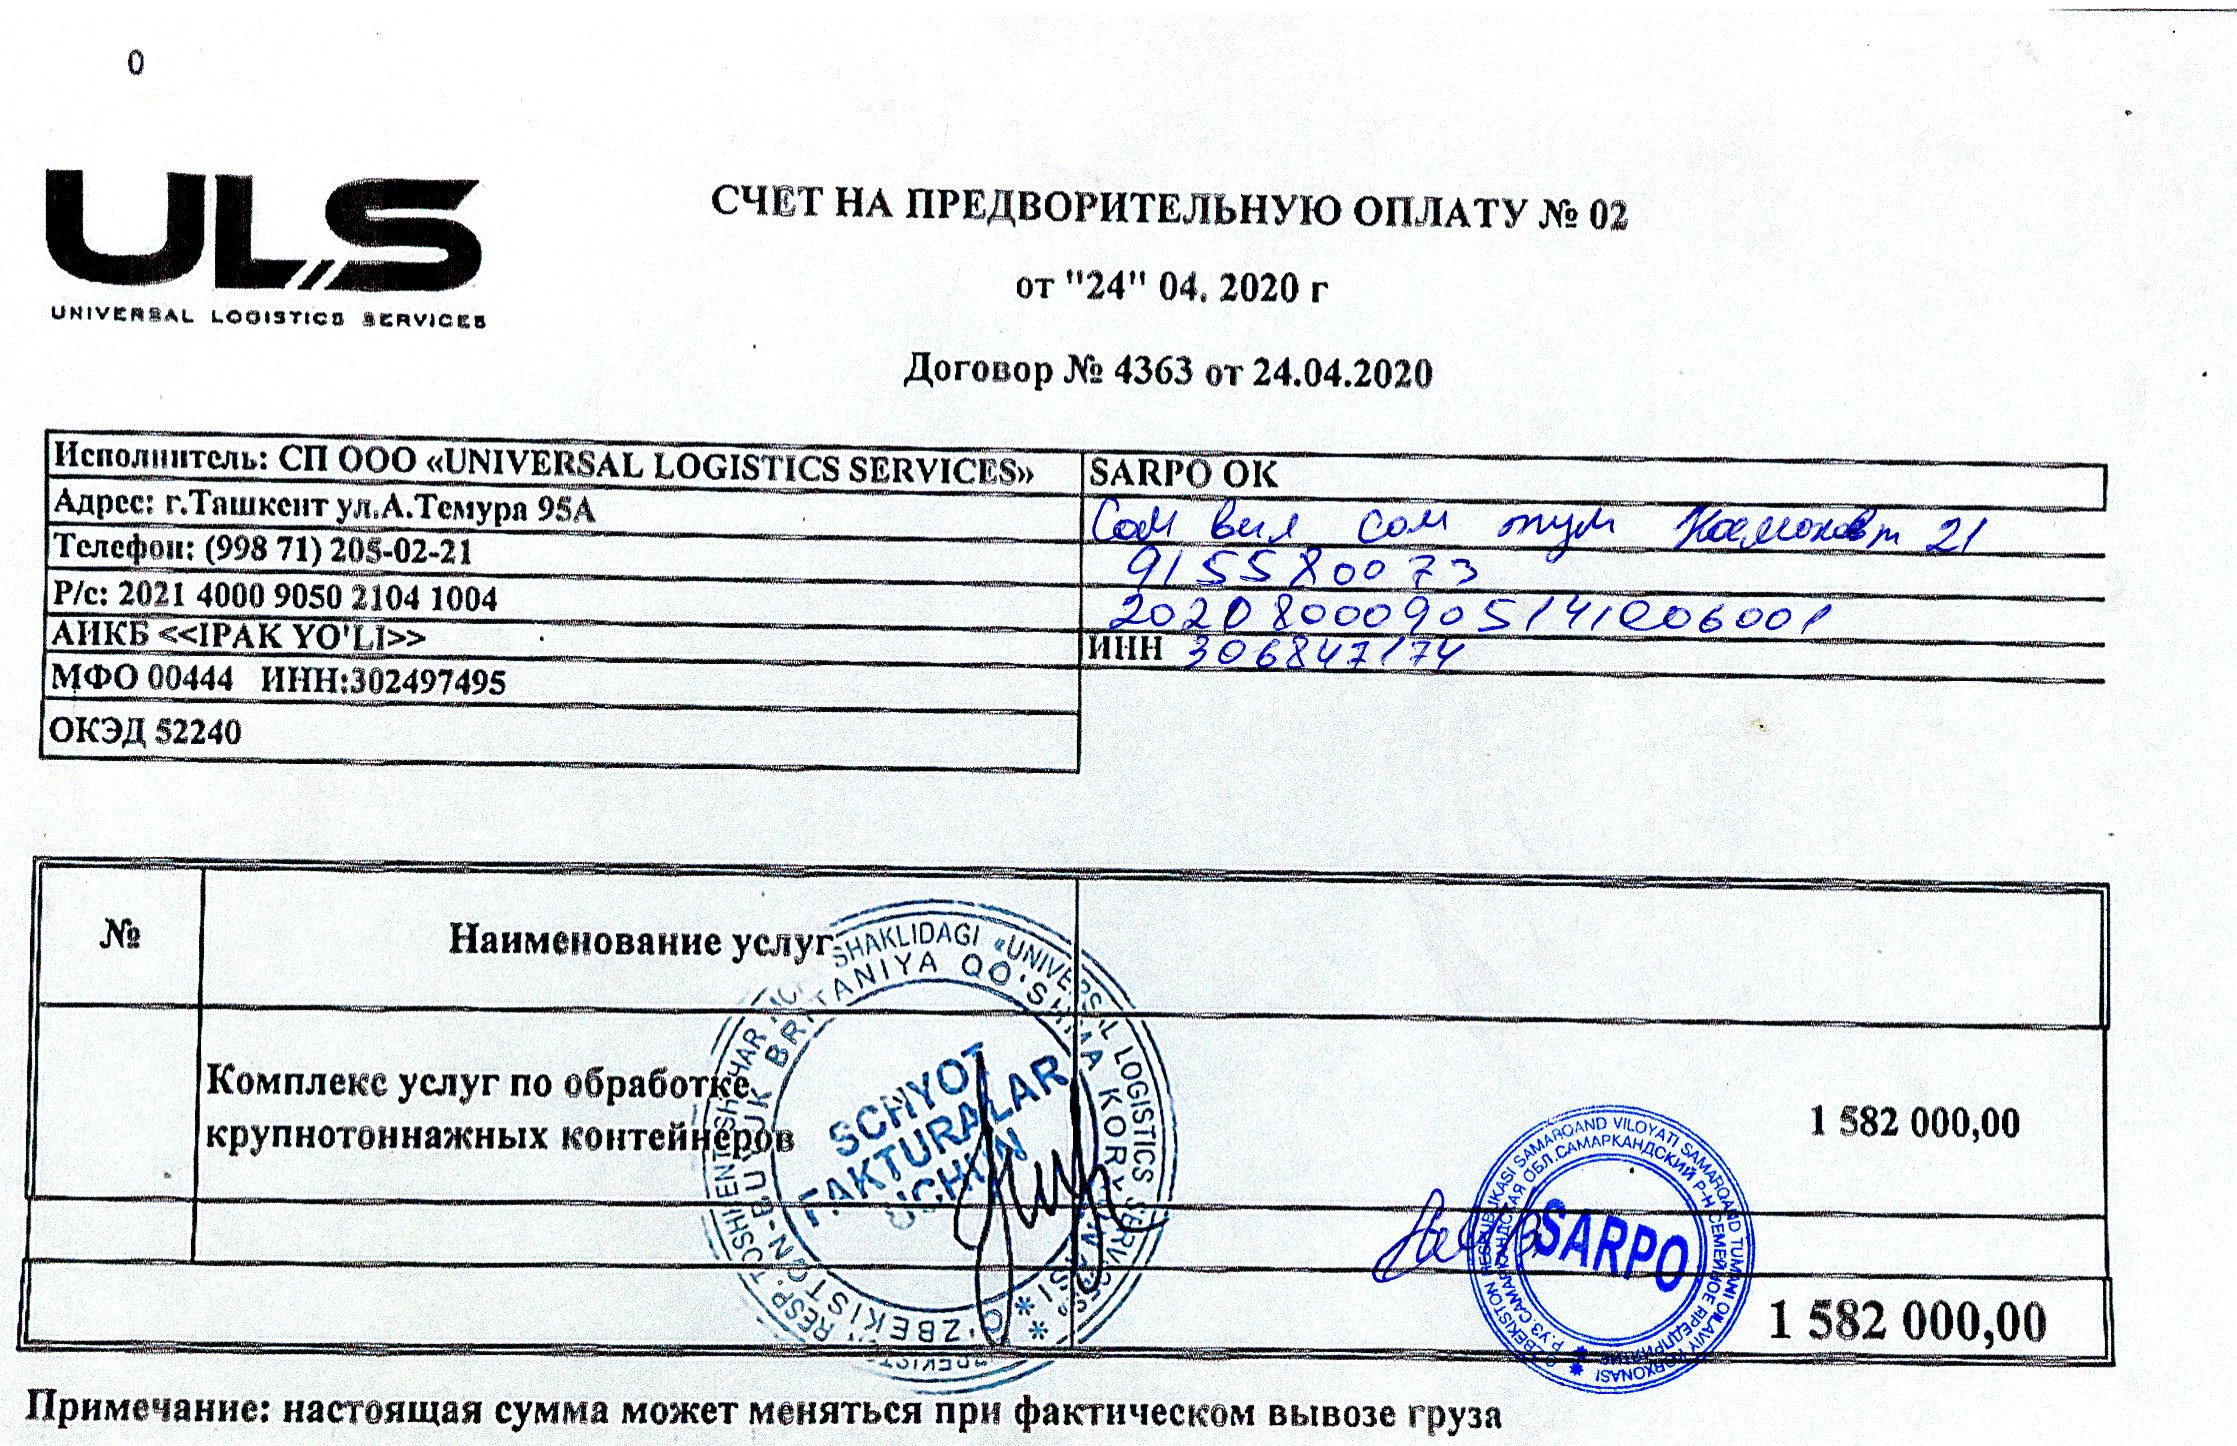 0
ULS
UNIVERSAL LOGISTICS SERVICES
СЧЕТ НА ПРЕДВОРИТЕЛЬНУЮ ОПЛАТУ № 02
от "24" 04. 2020 г
Договор № 4363 от 24.04.2020
Исполнитель: СП ООО «UNIVERSAL LOGISTICS SERVICES»
SARPO OK
Адрес: г.Ташкент ул.А.Темура 95А
Сам вил сам тум 21
Телефон: (998 71) 205-02-21
915580073
Р/с: 2021 4000 9050 2104 1004
20208000905141006001
АИКБ <<IPAK YO'LI>>
ИНН 306847174
МФО 00444 ИНН:302497495
ОКЭД 52240
№ Наименование услуг
Комплекс услуг по обработке
крупнотоннажных контейнеров
1 582 000,00
1 582 000,00
SHAKLIDAGI «UNIVERSAL LOGISTICS SERVICES»
BRITANIYA QO'SHMA
O'ZBEKISTON-BUYUK
SCHYOT
FAKTURALAR
UCHUN
O'ZBEKISTON RESPUBLIKASI SAMARQAND VILOYATI SAMARQAND TUMANI OILAVIY KORXONASI
Р.УЗ САМАРКАНДСКАЯ ОБЛ.САМАРКАНДСКИЙ Р-Н СЕМЕЙНОЕ ПРЕДПРИЯТИЕ
SARPO
Примечание: настоящая сумма может меняться при фактическом вывозе груза